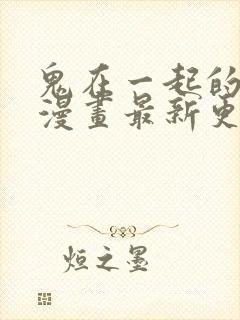 鬼在一起的
漫畫最新更
烜之墨